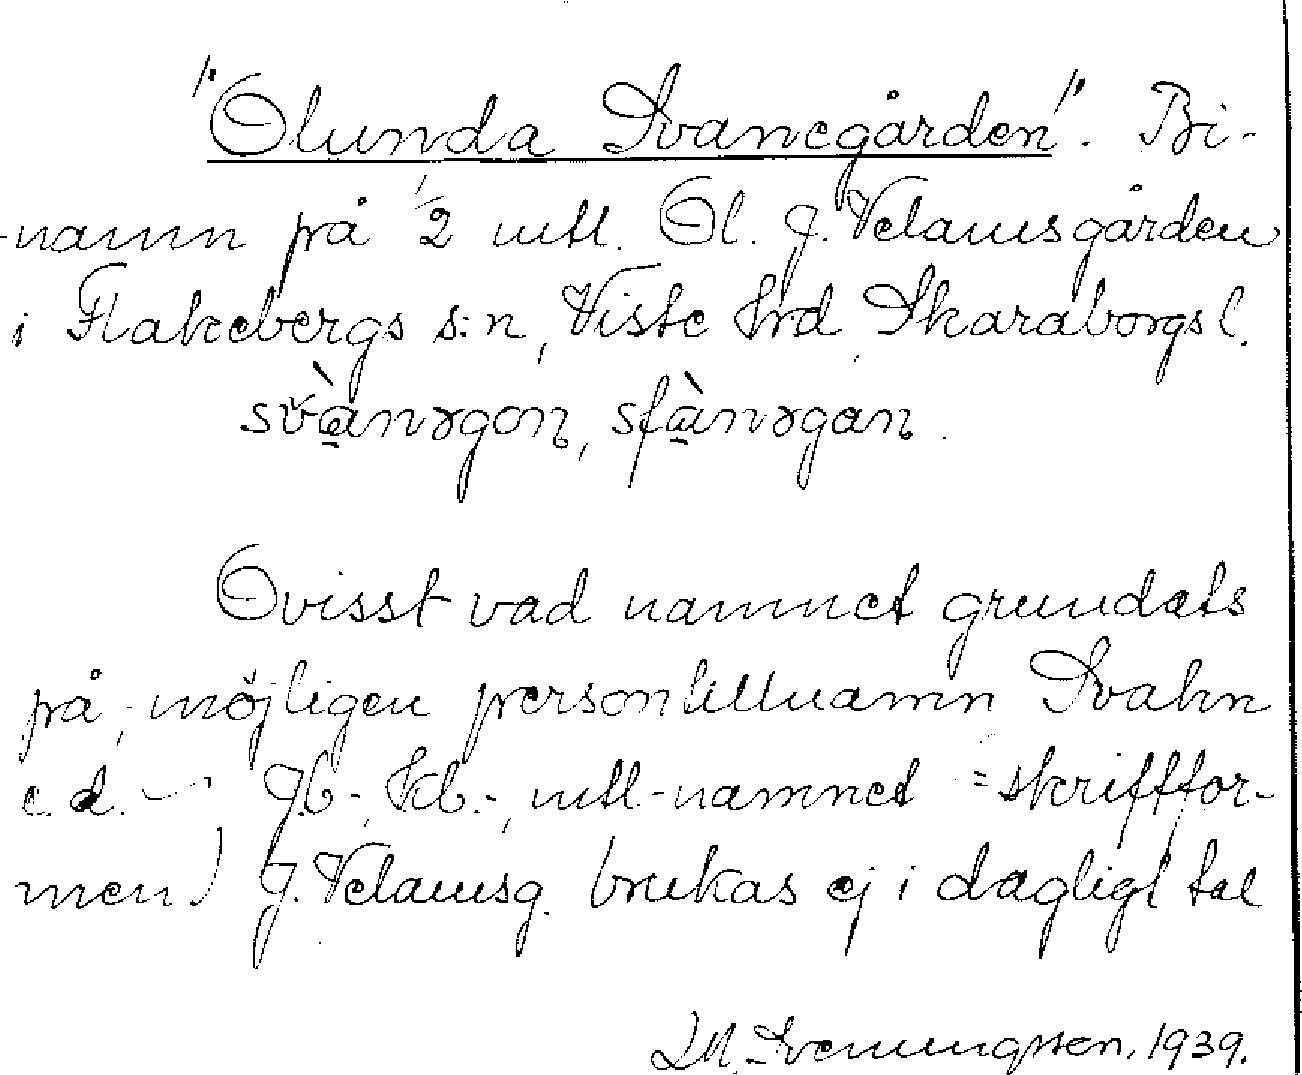 "Ölunda Svanegården". Bi-
namn på 1/2 mtl. Öl. J. Velamsgården
i Flakebergs s:n, Viste hrd Skaraborgs l.
Ovisst vad namnet grundats
på, möjligen persontillnamn Svahn
e. d. — Jb-, kb.-, mtl.-namnet =skriftfor-
men) J. Velamsg. brukas ej i dagligt tal
Svenungsson, 1939.